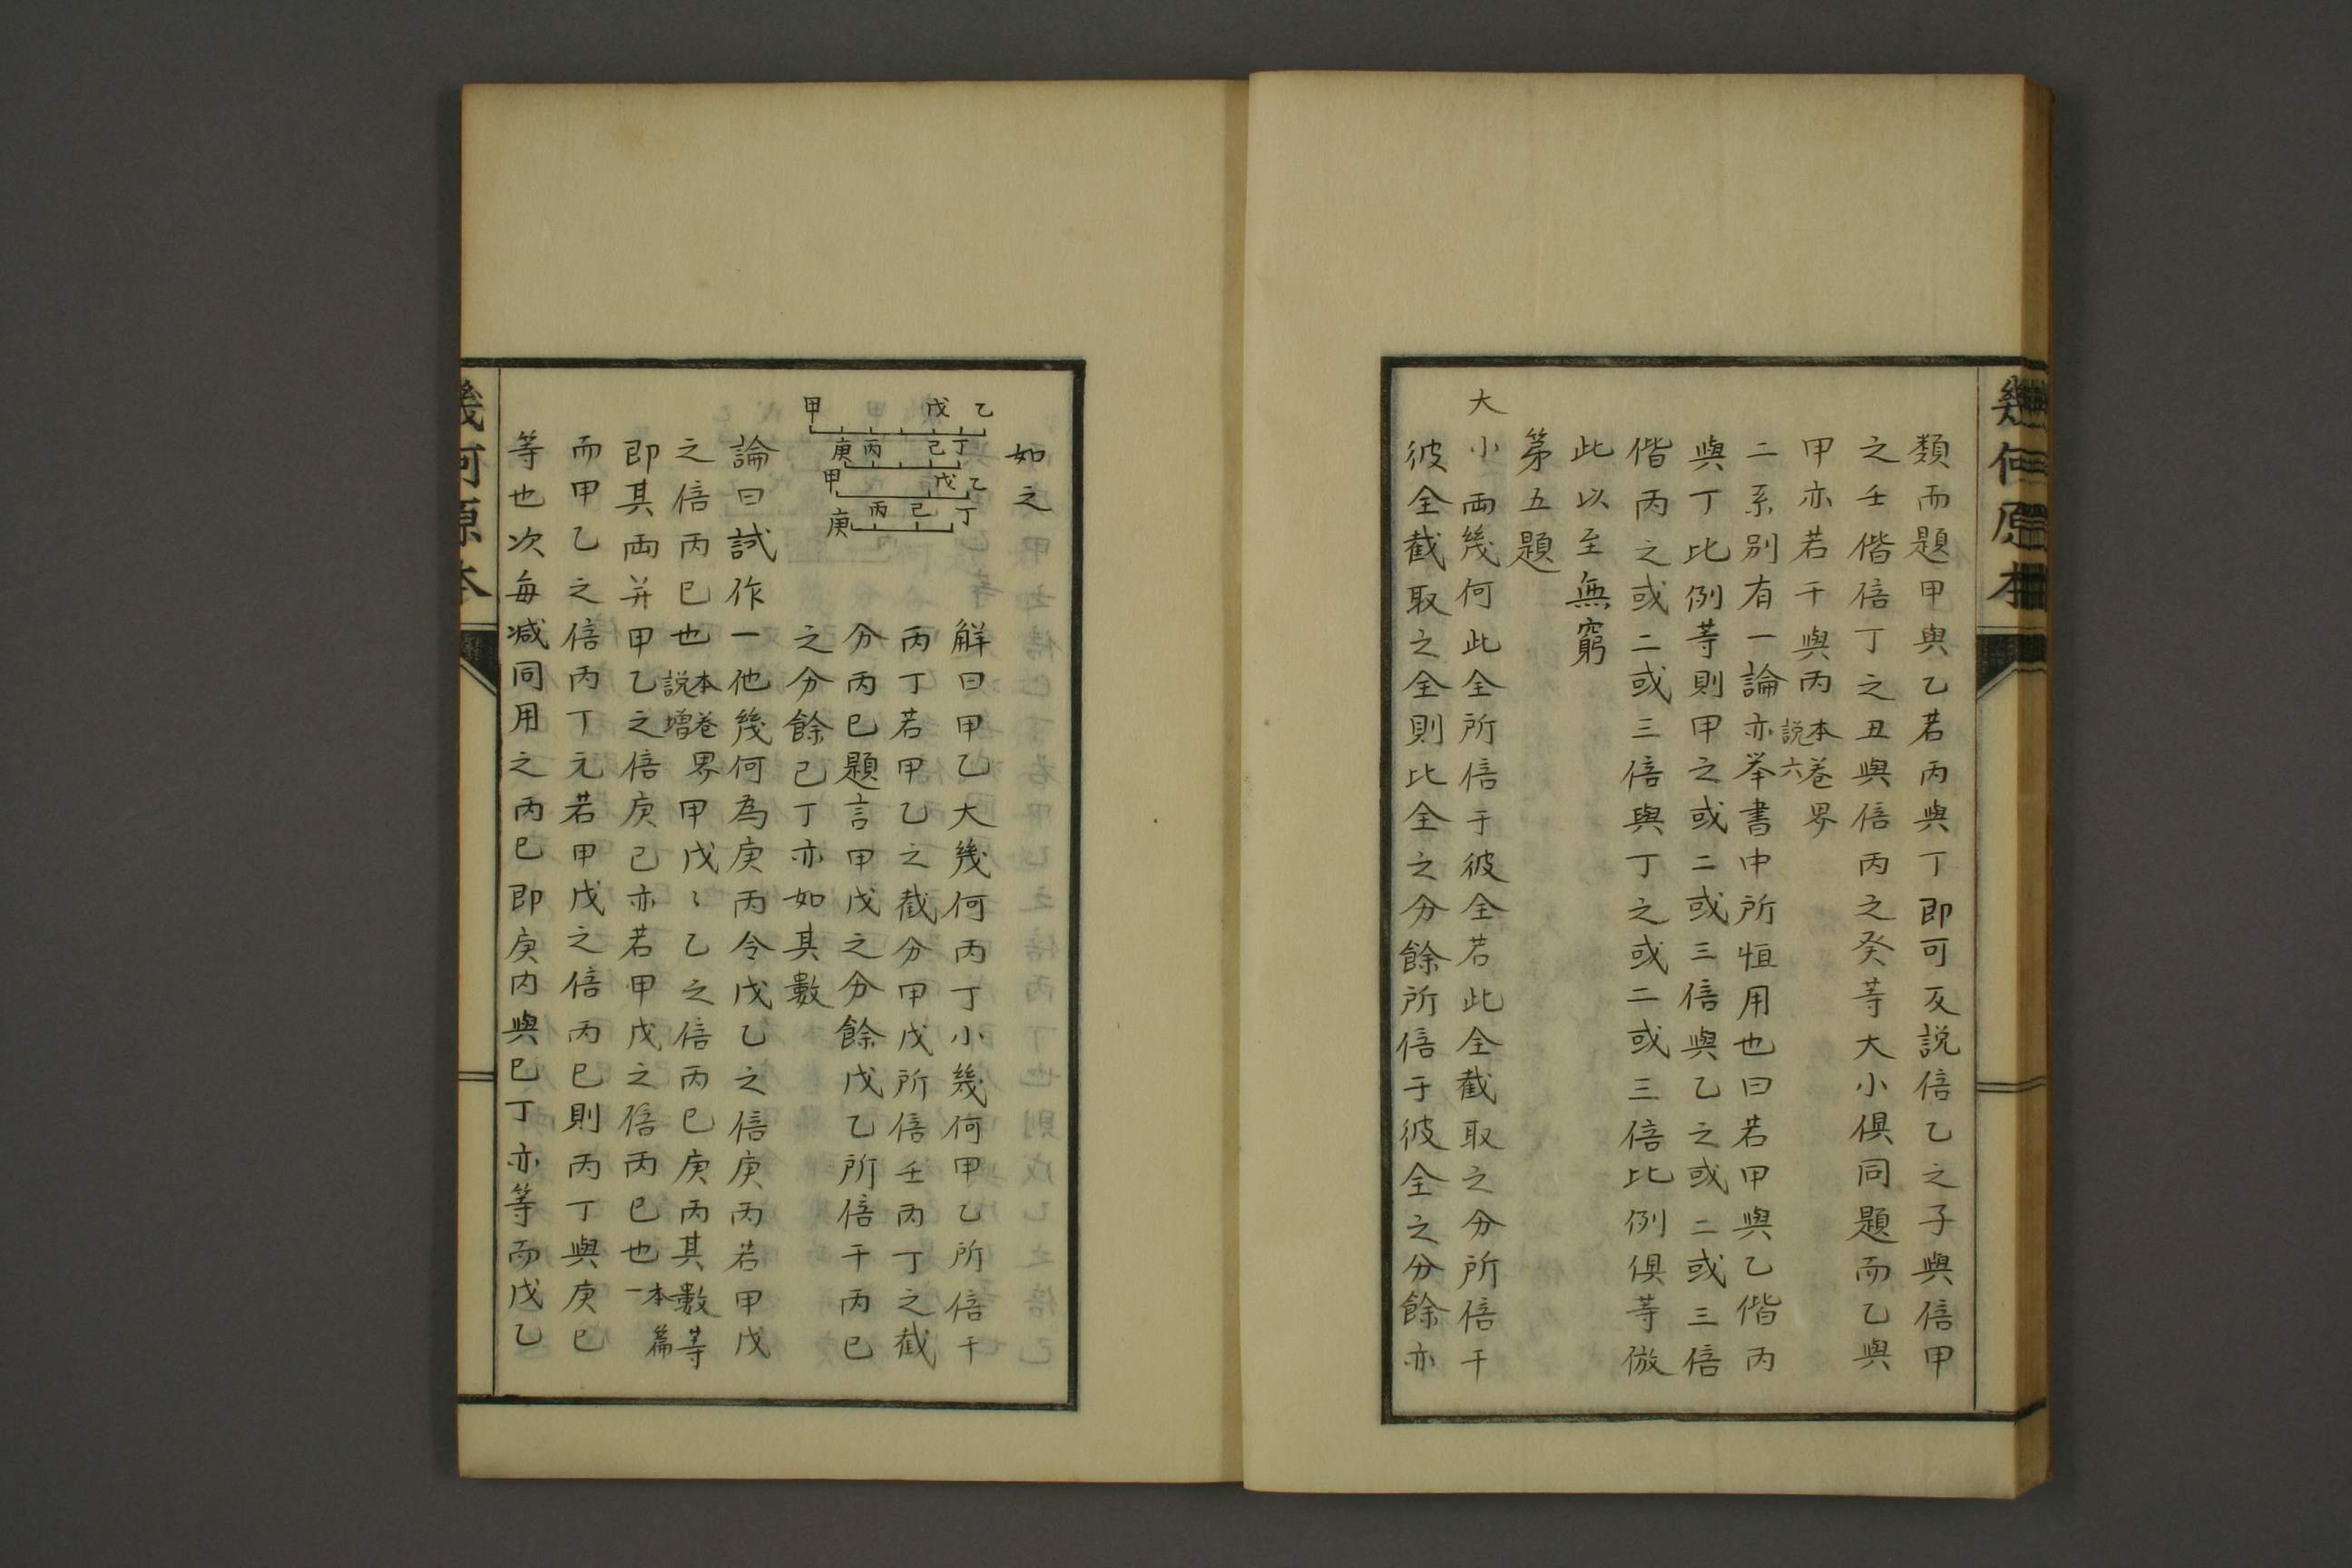 幾何原本
類而題甲與乙若丙與丁即可反説倍乙之子與倍甲
之壬偕倍丁之丑與倍丙之癸等大小俱同題而乙與
甲亦若干與丙本卷界説六
二系别有一論亦举書中所恒用也曰若甲與乙偕丙
與丁比例等則甲之或二或三倍與乙之或二或三倍
偕丙之或二或三倍與丁之或二或三倍比例俱等倣
此以至無窮
第五題
大小兩幾何此全所倍于彼全若此全截取之分所倍干
彼全截取之全則比全之分餘所倍于彼全之分餘亦
如之
甲 戊 乙
庚 丙 己 丁
甲 戊 乙
庚 丙 己 丁
解曰甲乙大幾何丙丁小幾何甲乙所倍干
丙丁若甲乙之截分甲戊所倍壬丙丁之截
分丙巳題言甲戊之分餘戊乙所倍干丙巳
之分餘己丁亦如其數
論曰試作一他幾何為庚丙令戊乙之倍庚丙若甲戊
之倍丙巳也本卷界説增甲戊〻乙之倍丙巳庚丙其數等
即其両并甲乙之倍庚己亦若甲戊之倍丙巳也本篇一
而甲乙之倍丙丁元若甲戊之倍丙巳則丙丁與庚巳
等也次每减同用之丙巳即庚内與巳丁亦等而戊乙
幾何原本